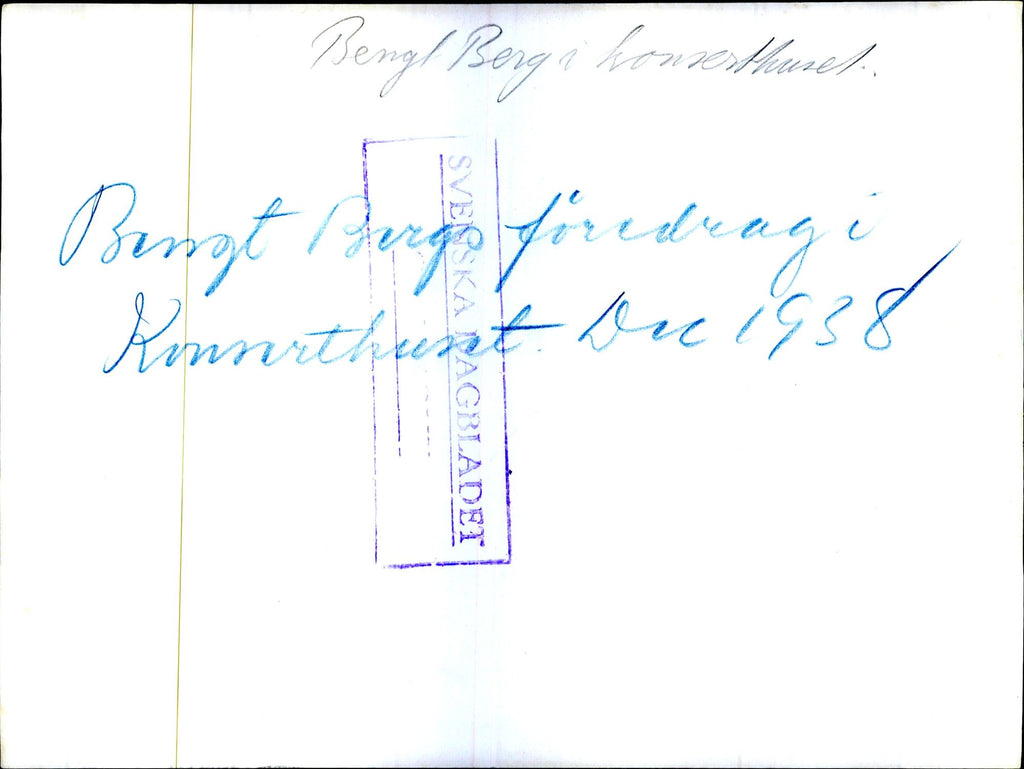 Bengt Berg i konserthuset.
Bengt Bergs föredrag i
Konserthuset. Dec 1938
SVENSKA DAGBLADET